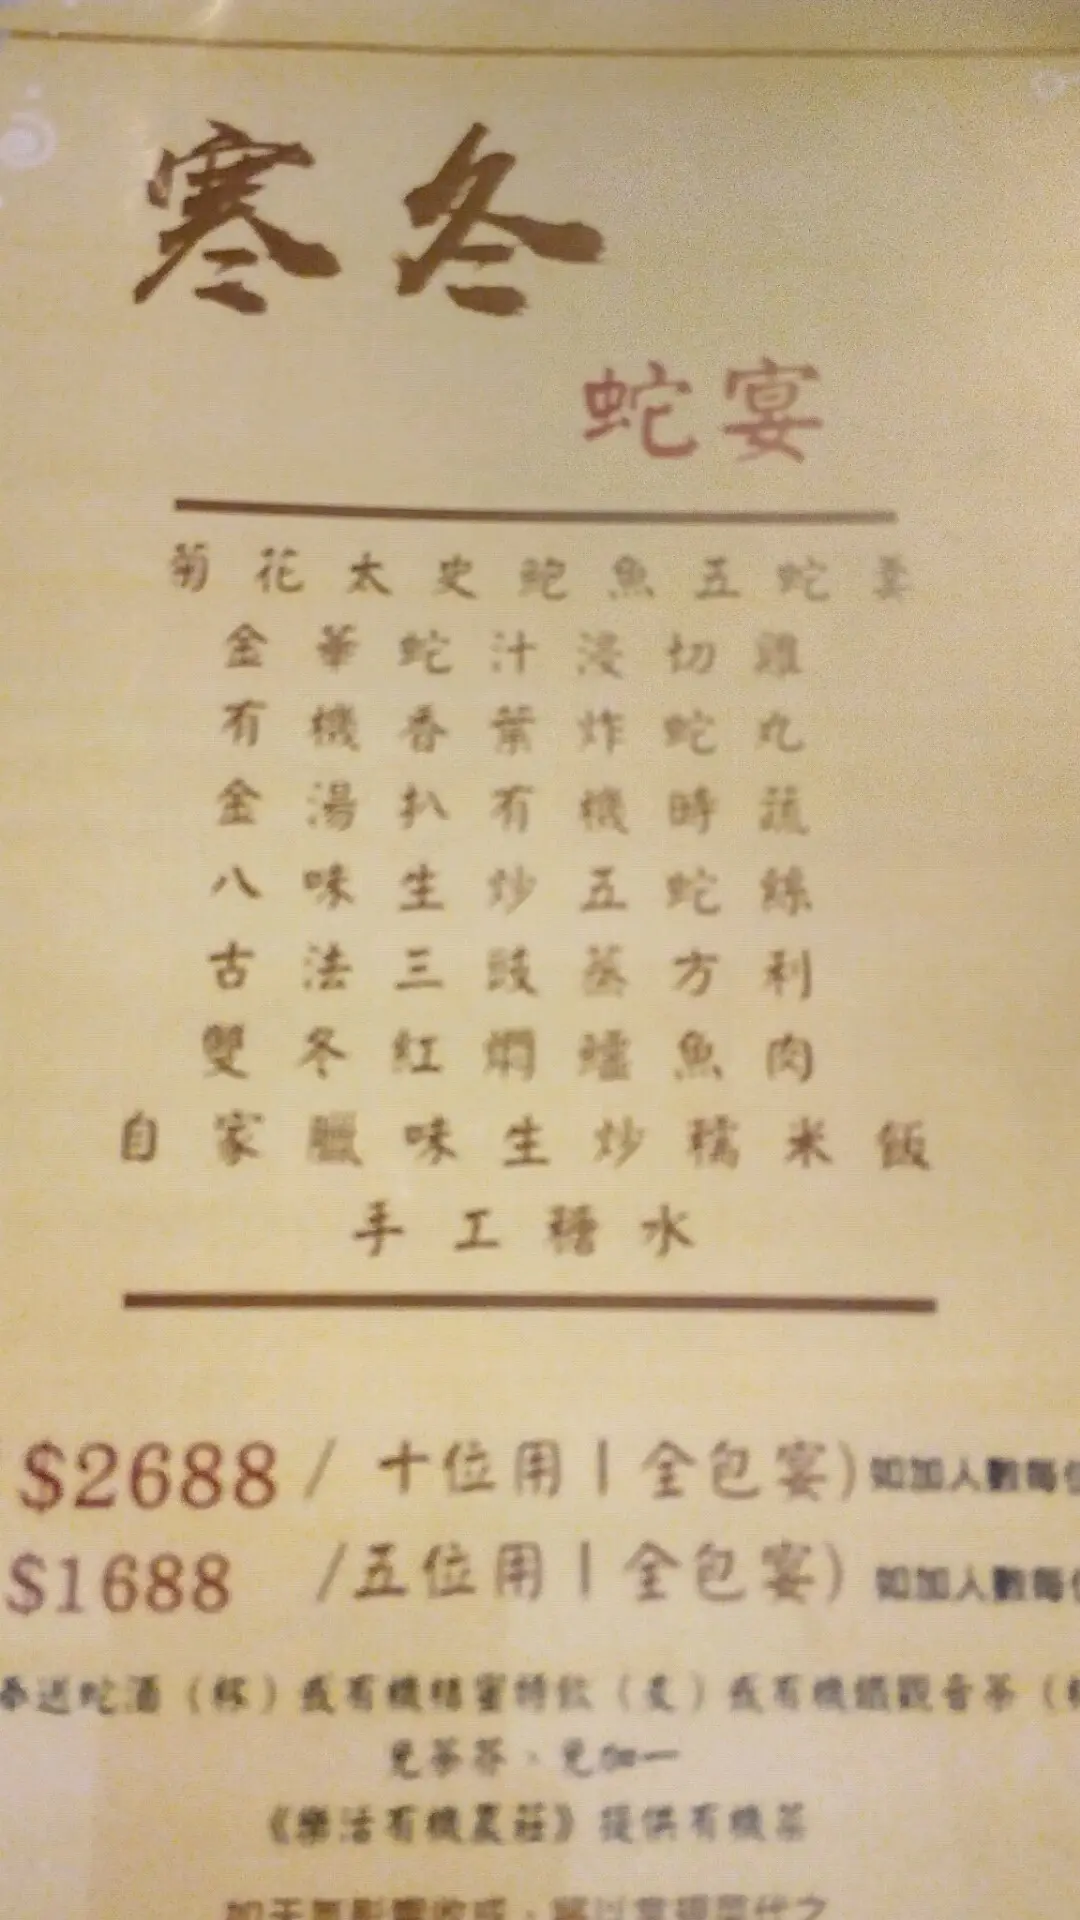 寒冬
蛇宴
菊花太史鮑魚五蛇羹
金華蛇汁浸切雞
有機香葉炸蛇丸
金湯扒有機時蔬
八味生炒五蛇絲
古法三豉蒸方利
雙冬紅燜鱸魚肉
自家臘味生炒糯米飯
手工糖水
$2688 / 十位用 | 全包宴) 如加人數每位
$1688 /五位用 | 全包宴) 如加人數每位
奉送蛇酒（杯）或有機桔蜜特飲（支）或有機鐵觀音茶（
免茶芥，免加一
《樂活有機農莊》提供有機菜